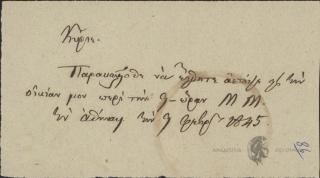 Κύριε.
Παρακαλεῖσθε νὰ ἔλθητε εἰς τὴν
οἰκίαν μου περὶ τὴν 9 ὥραν Μ Μ
Ἐν Ἀθήναις τὴν 9 Φεβρ 1845